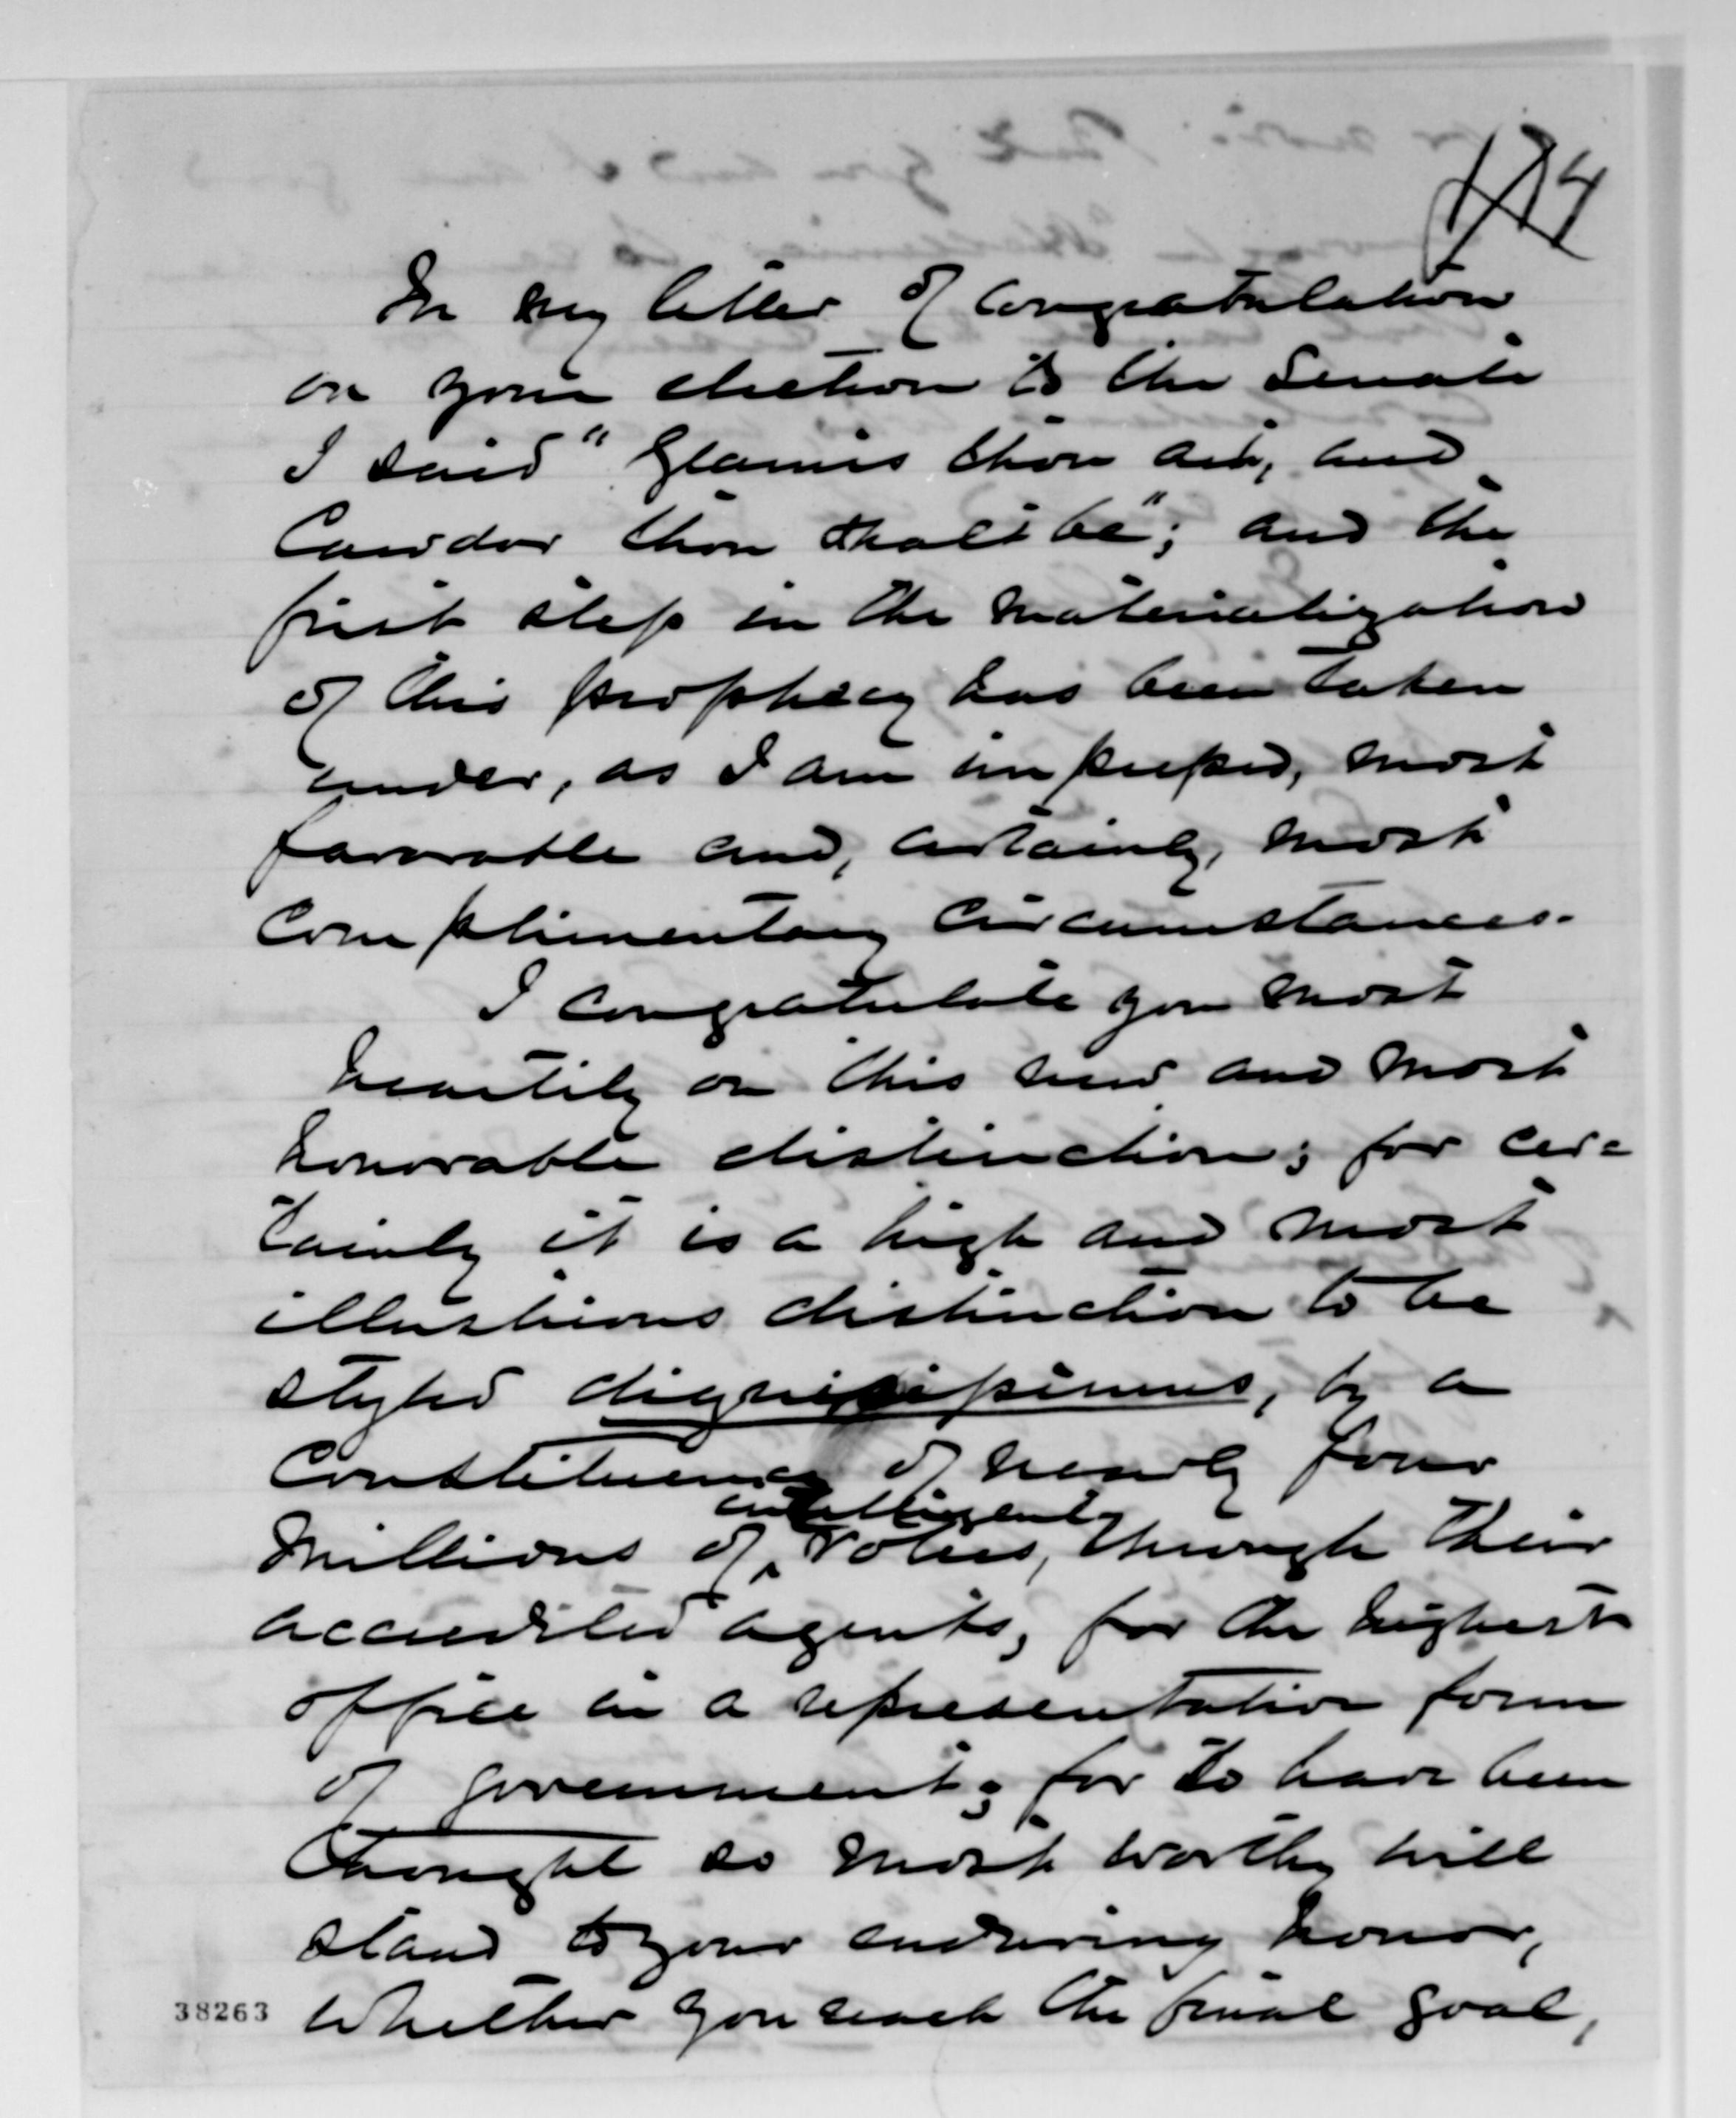 In my letter of congratulation
on your election to the Senate
I said "Glamis thou art, and
Cawdor thou shalt be"; and the
first step in the materialization
of this prophecy has been taken
under, as I am impressed, most
favorable and, certainly, most
complimentary circumstances.
I congratulate you most
heartily on this new and most
honorable distinction; for cer=
tainly it is a high and most
illustrious distinction to be
styled dignissimus, by a
Constituency of nearly four
intelligent
millions of voters, through their
accredited agents, for the highest
office in a representative form
of government; for to have been
thought so most worthy will
stand to your enduring honor,
38263 whether you reach the final goal,